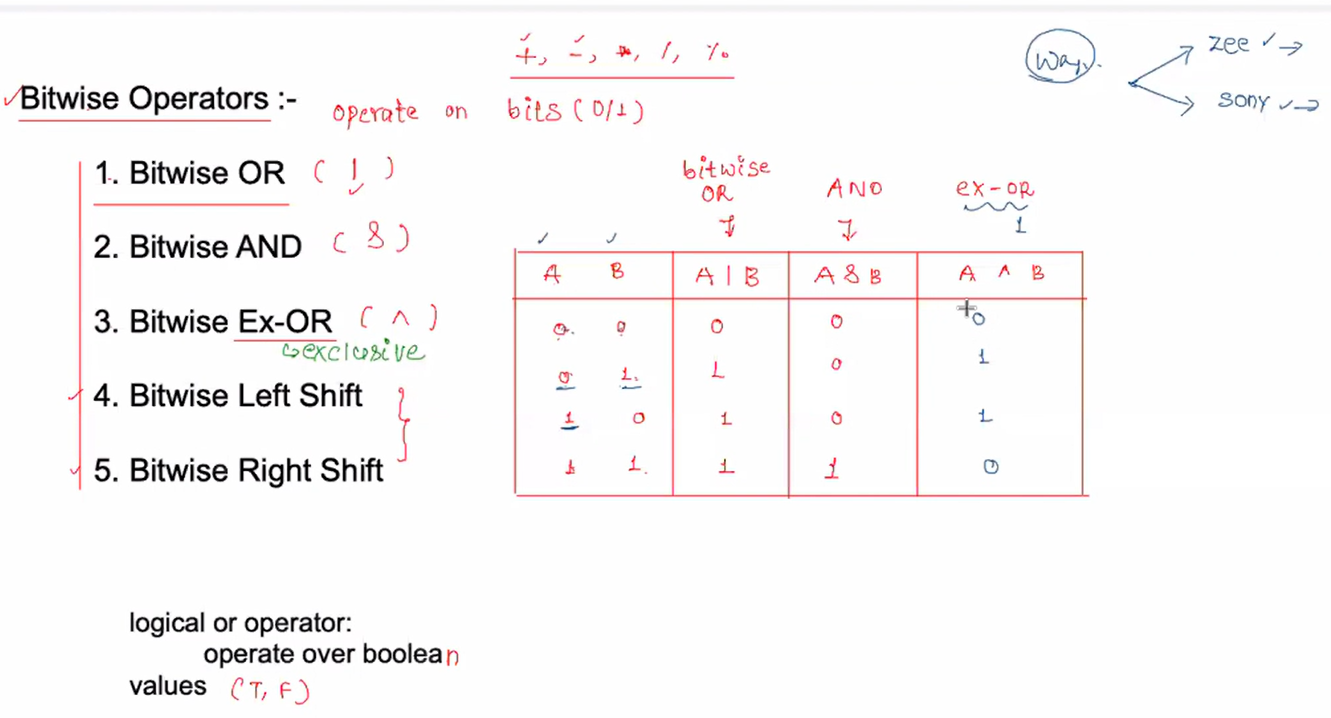 +, -, *, /, %
Way.
zee
sony
Bitwise Operators :- operate on bits (0/1)
1. Bitwise OR ( | )
2. Bitwise AND ( & )
3. Bitwise Ex-OR ( ^ )
exclusive
4. Bitwise Left Shift
5. Bitwise Right Shift
bitwise
OR AND ex-OR
1
A B A | B A & B A ^ B
0 0 0 0 0
0 1 1 0 1
1 0 1 0 1
1 1 1 1 0
logical or operator:
operate over boolean
values (T, F)